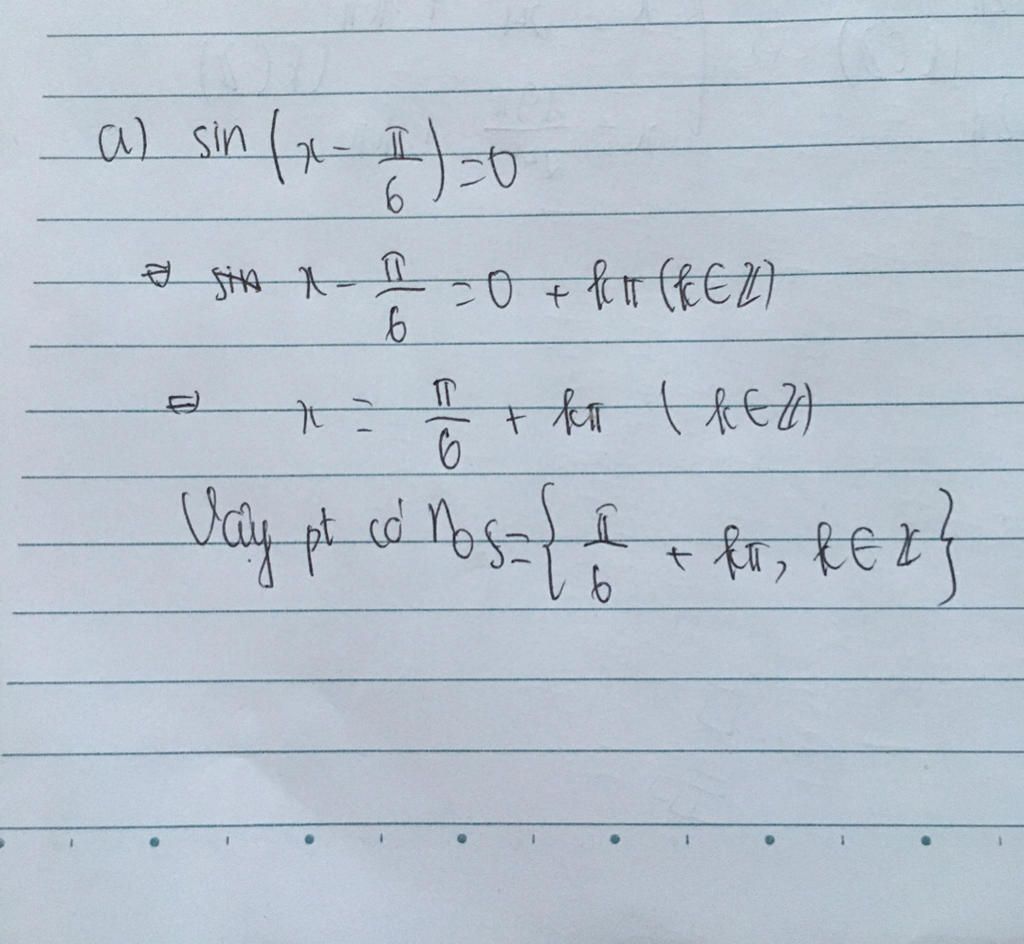 a) sin (x - π/6) = 0
⇔ x - π/6 = 0 + kπ (k ∈ Z)
⇔ x = π/6 + kπ (k ∈ Z)
Vậy pt có no S = { π/6 + kπ, k ∈ Z }